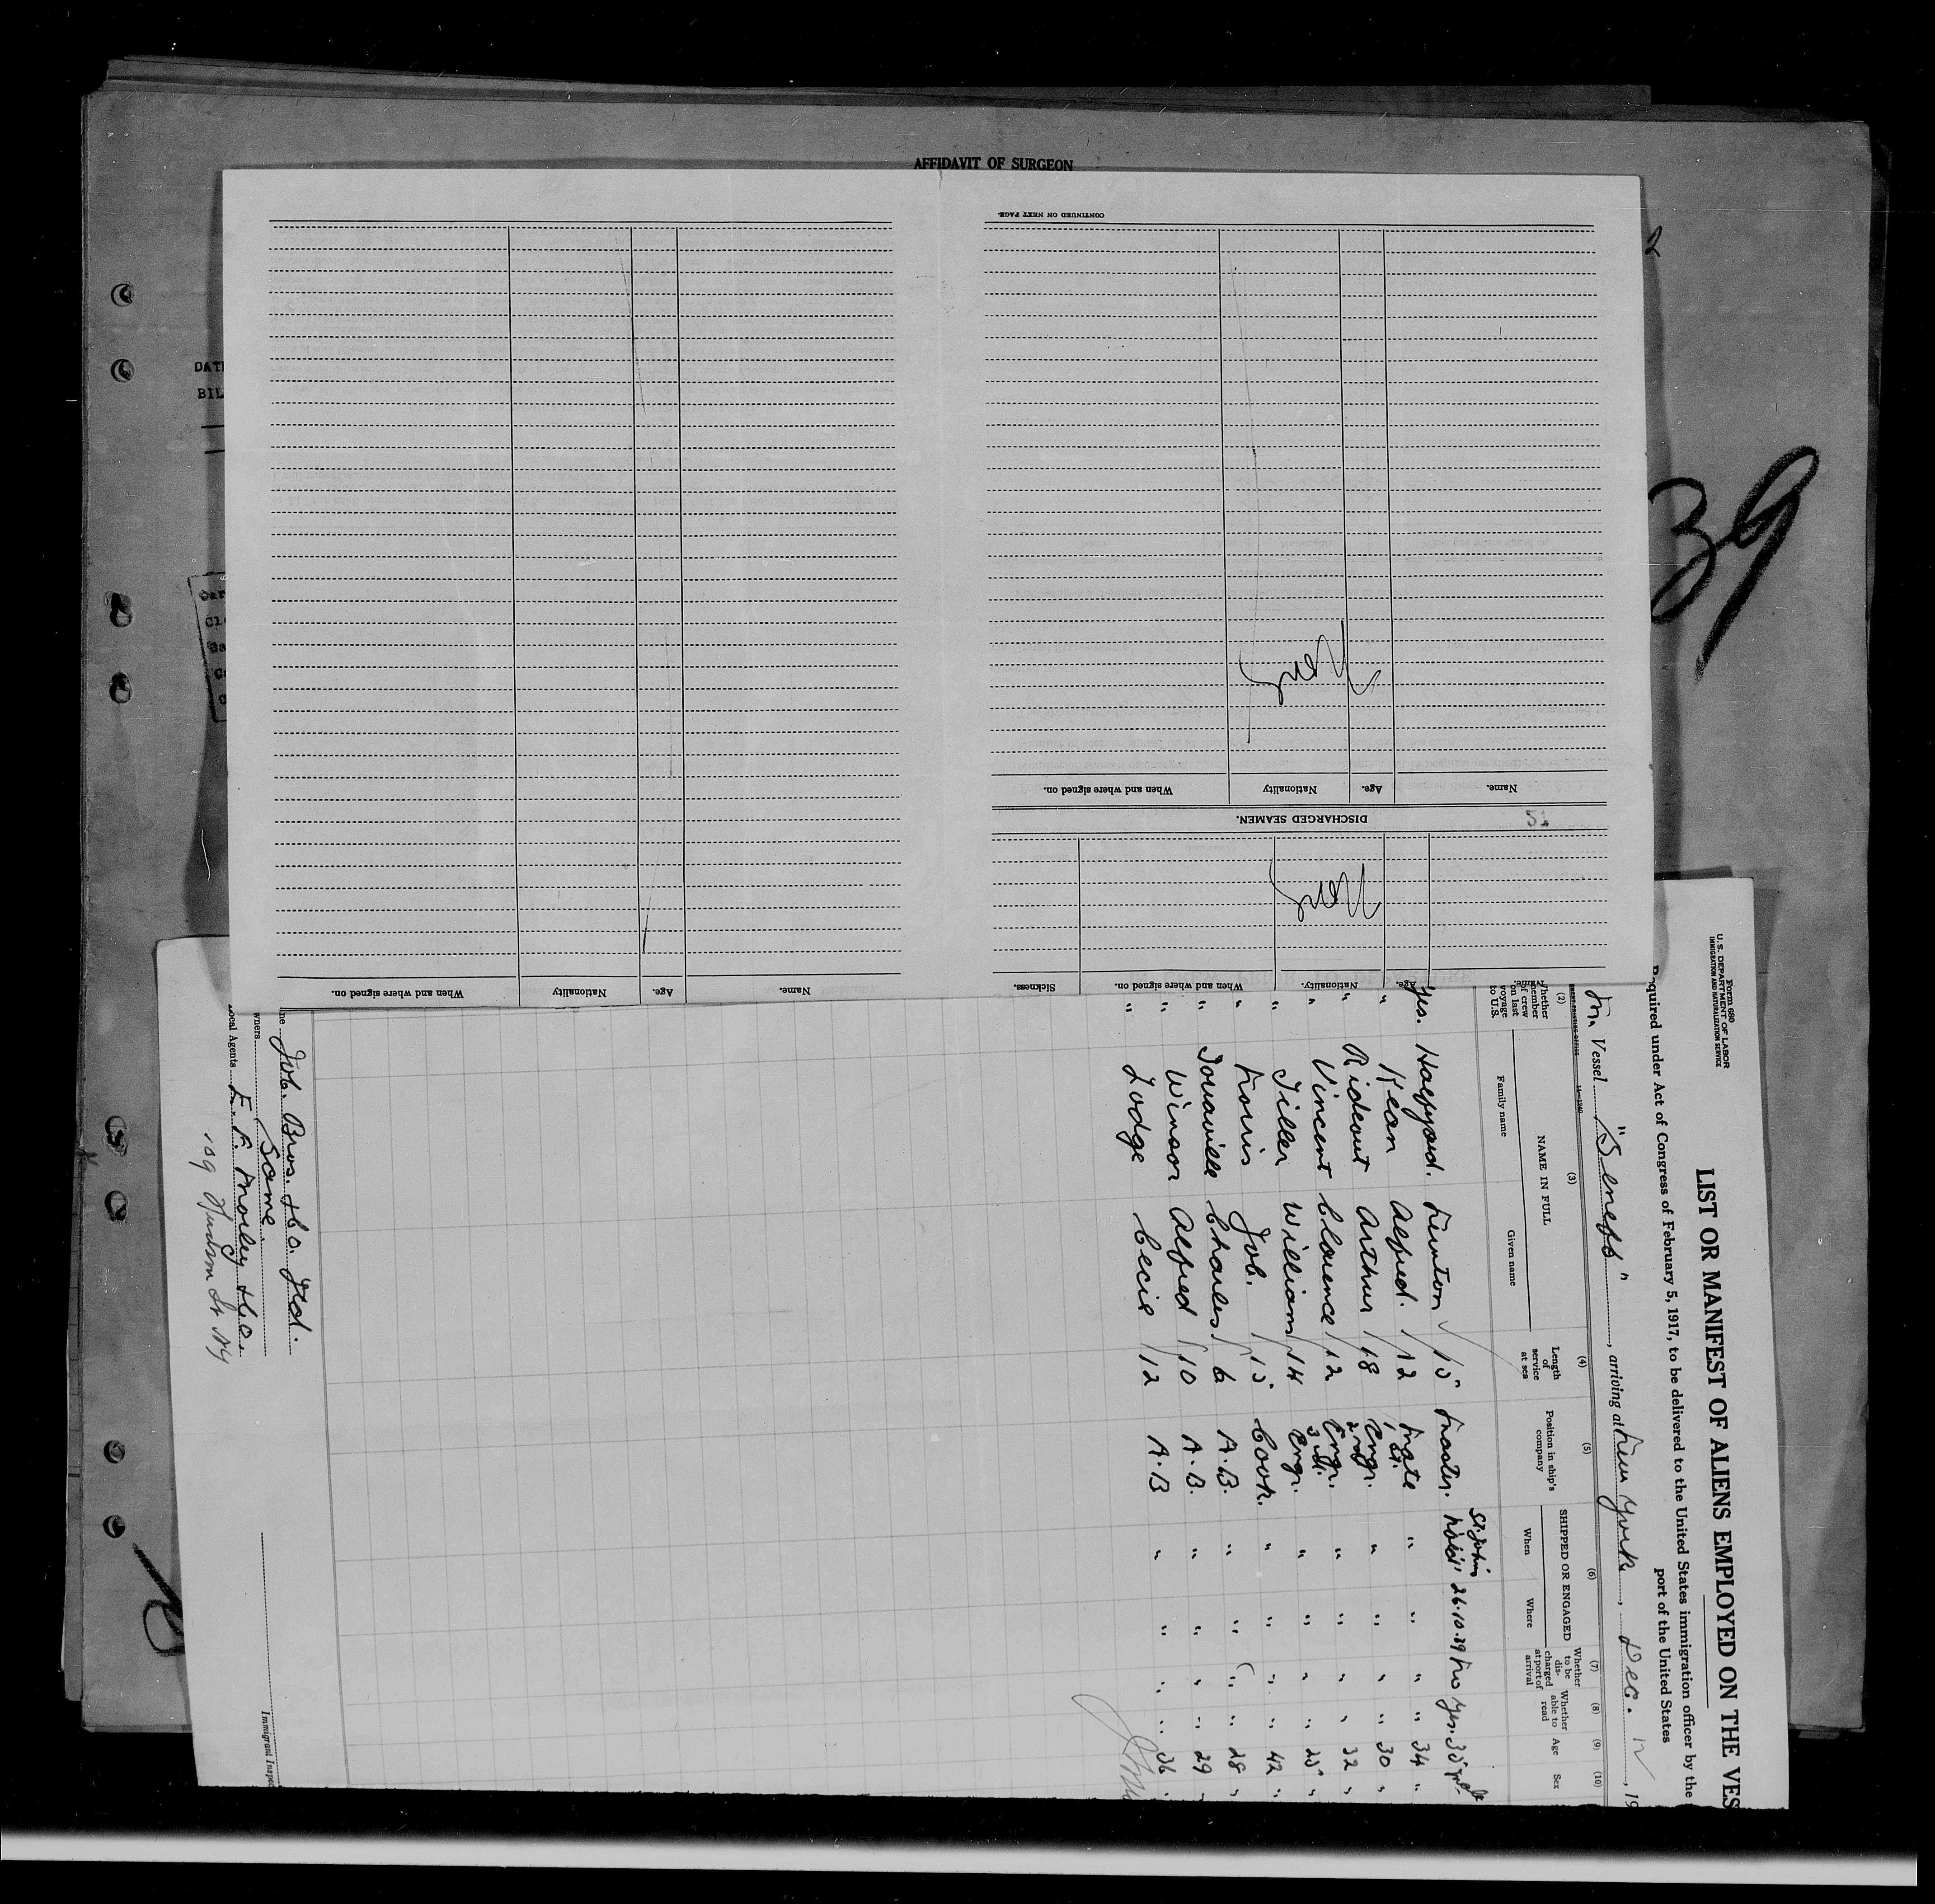 AFFIDAVIT OF SURGEON
2
39
DATE
BIL
CONTINUED ON NEXT PAGE.
Name. Age. Nationality When and where signed on.
DISCHARGED SEAMEN.
Name. Age. Nationality When and where signed on.
Age. Nationality. When and where signed on. Sickness.
Form 680
U. S. DEPARTMENT OF LABOR
IMMIGRATION AND NATURALIZATION SERVICE
LIST OR MANIFEST OF ALIENS EMPLOYED ON THE VES
Required under Act of Congress of February 5, 1917, to be delivered to the United States immigration officer by the
port of the United States
Vessel "Seneff", arriving at New York, Dec. 12, 19
(2) (3) (4) (5) (6) (7) (8) (9) (10)
Whether member of crew on last voyage to U.S.
NAME IN FULL
Family name Given name
Length of service at sea
Position in ship's company
SHIPPED OR ENGAGED
When Where
Whether to be discharged at port of arrival
Whether able to read
Age Sex
Yes. 15 Master. St. John's 26.10.39 No Yes. 35
" Kean Alfred. 12 1st Mate " " " " 34 "
" Rideout Arthur 18 Engr. " " " " 30 "
" Vincent Clarence 12 2nd Engr. " " " " 32 "
" Tiller William 14 3rd Engr. " " " " 25 "
" Norris Job. 15 Cook. " " " " 42 "
" Charles 6 A.B. " " " " 28 "
" Winsor Alfred 10 A.B. " " " " 29 "
" Lodge Cecil 12 A.B " " " " 36 "
Job. Bros. & Co. Ltd.
Same.
Local Agents E. F. & Co.
Hudson St NY
Immigrant Inspec